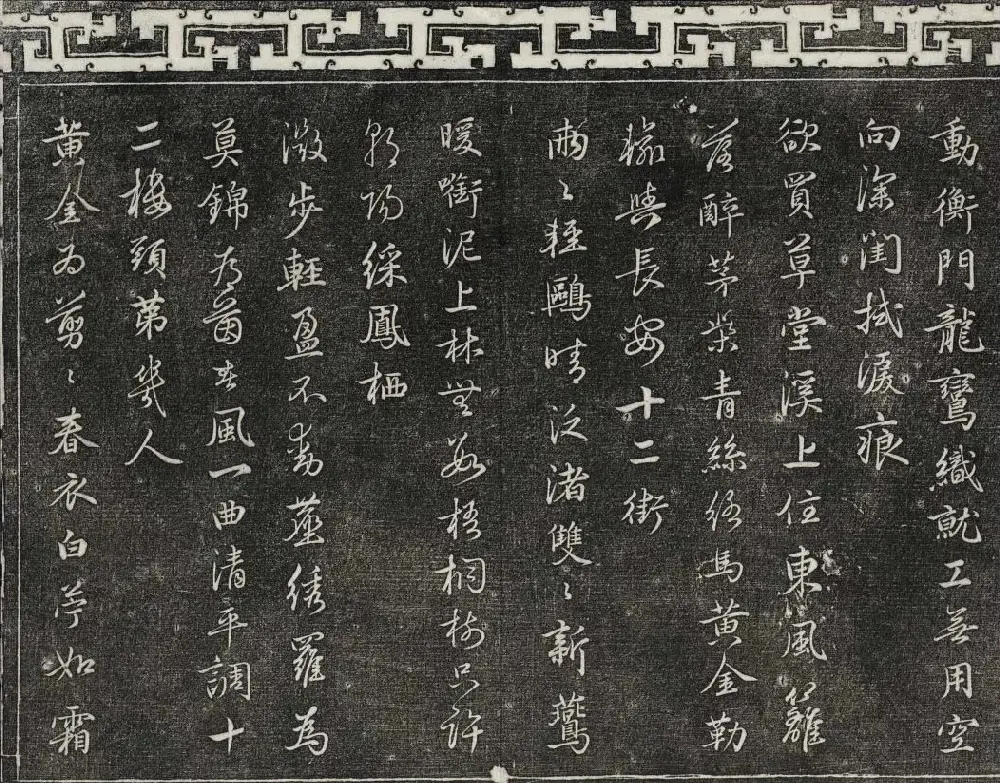 動衡門龍鸞織就工無用空
向深閨拭淚痕
欲買草堂溪上住東風籬
落醉茅柴青絲絡馬黃金勒
輸與長安十二街
兩〻輕鷗晴泛渚雙〻新鷰
暖銜泥上林無數梧桐樹只許
朝陽綵鳳栖
微步輕盈不動塵綉羅為
幕錦為茵春風一曲清平調十
二樓頭第幾人
黃金為剪〻春衣白苧如霜